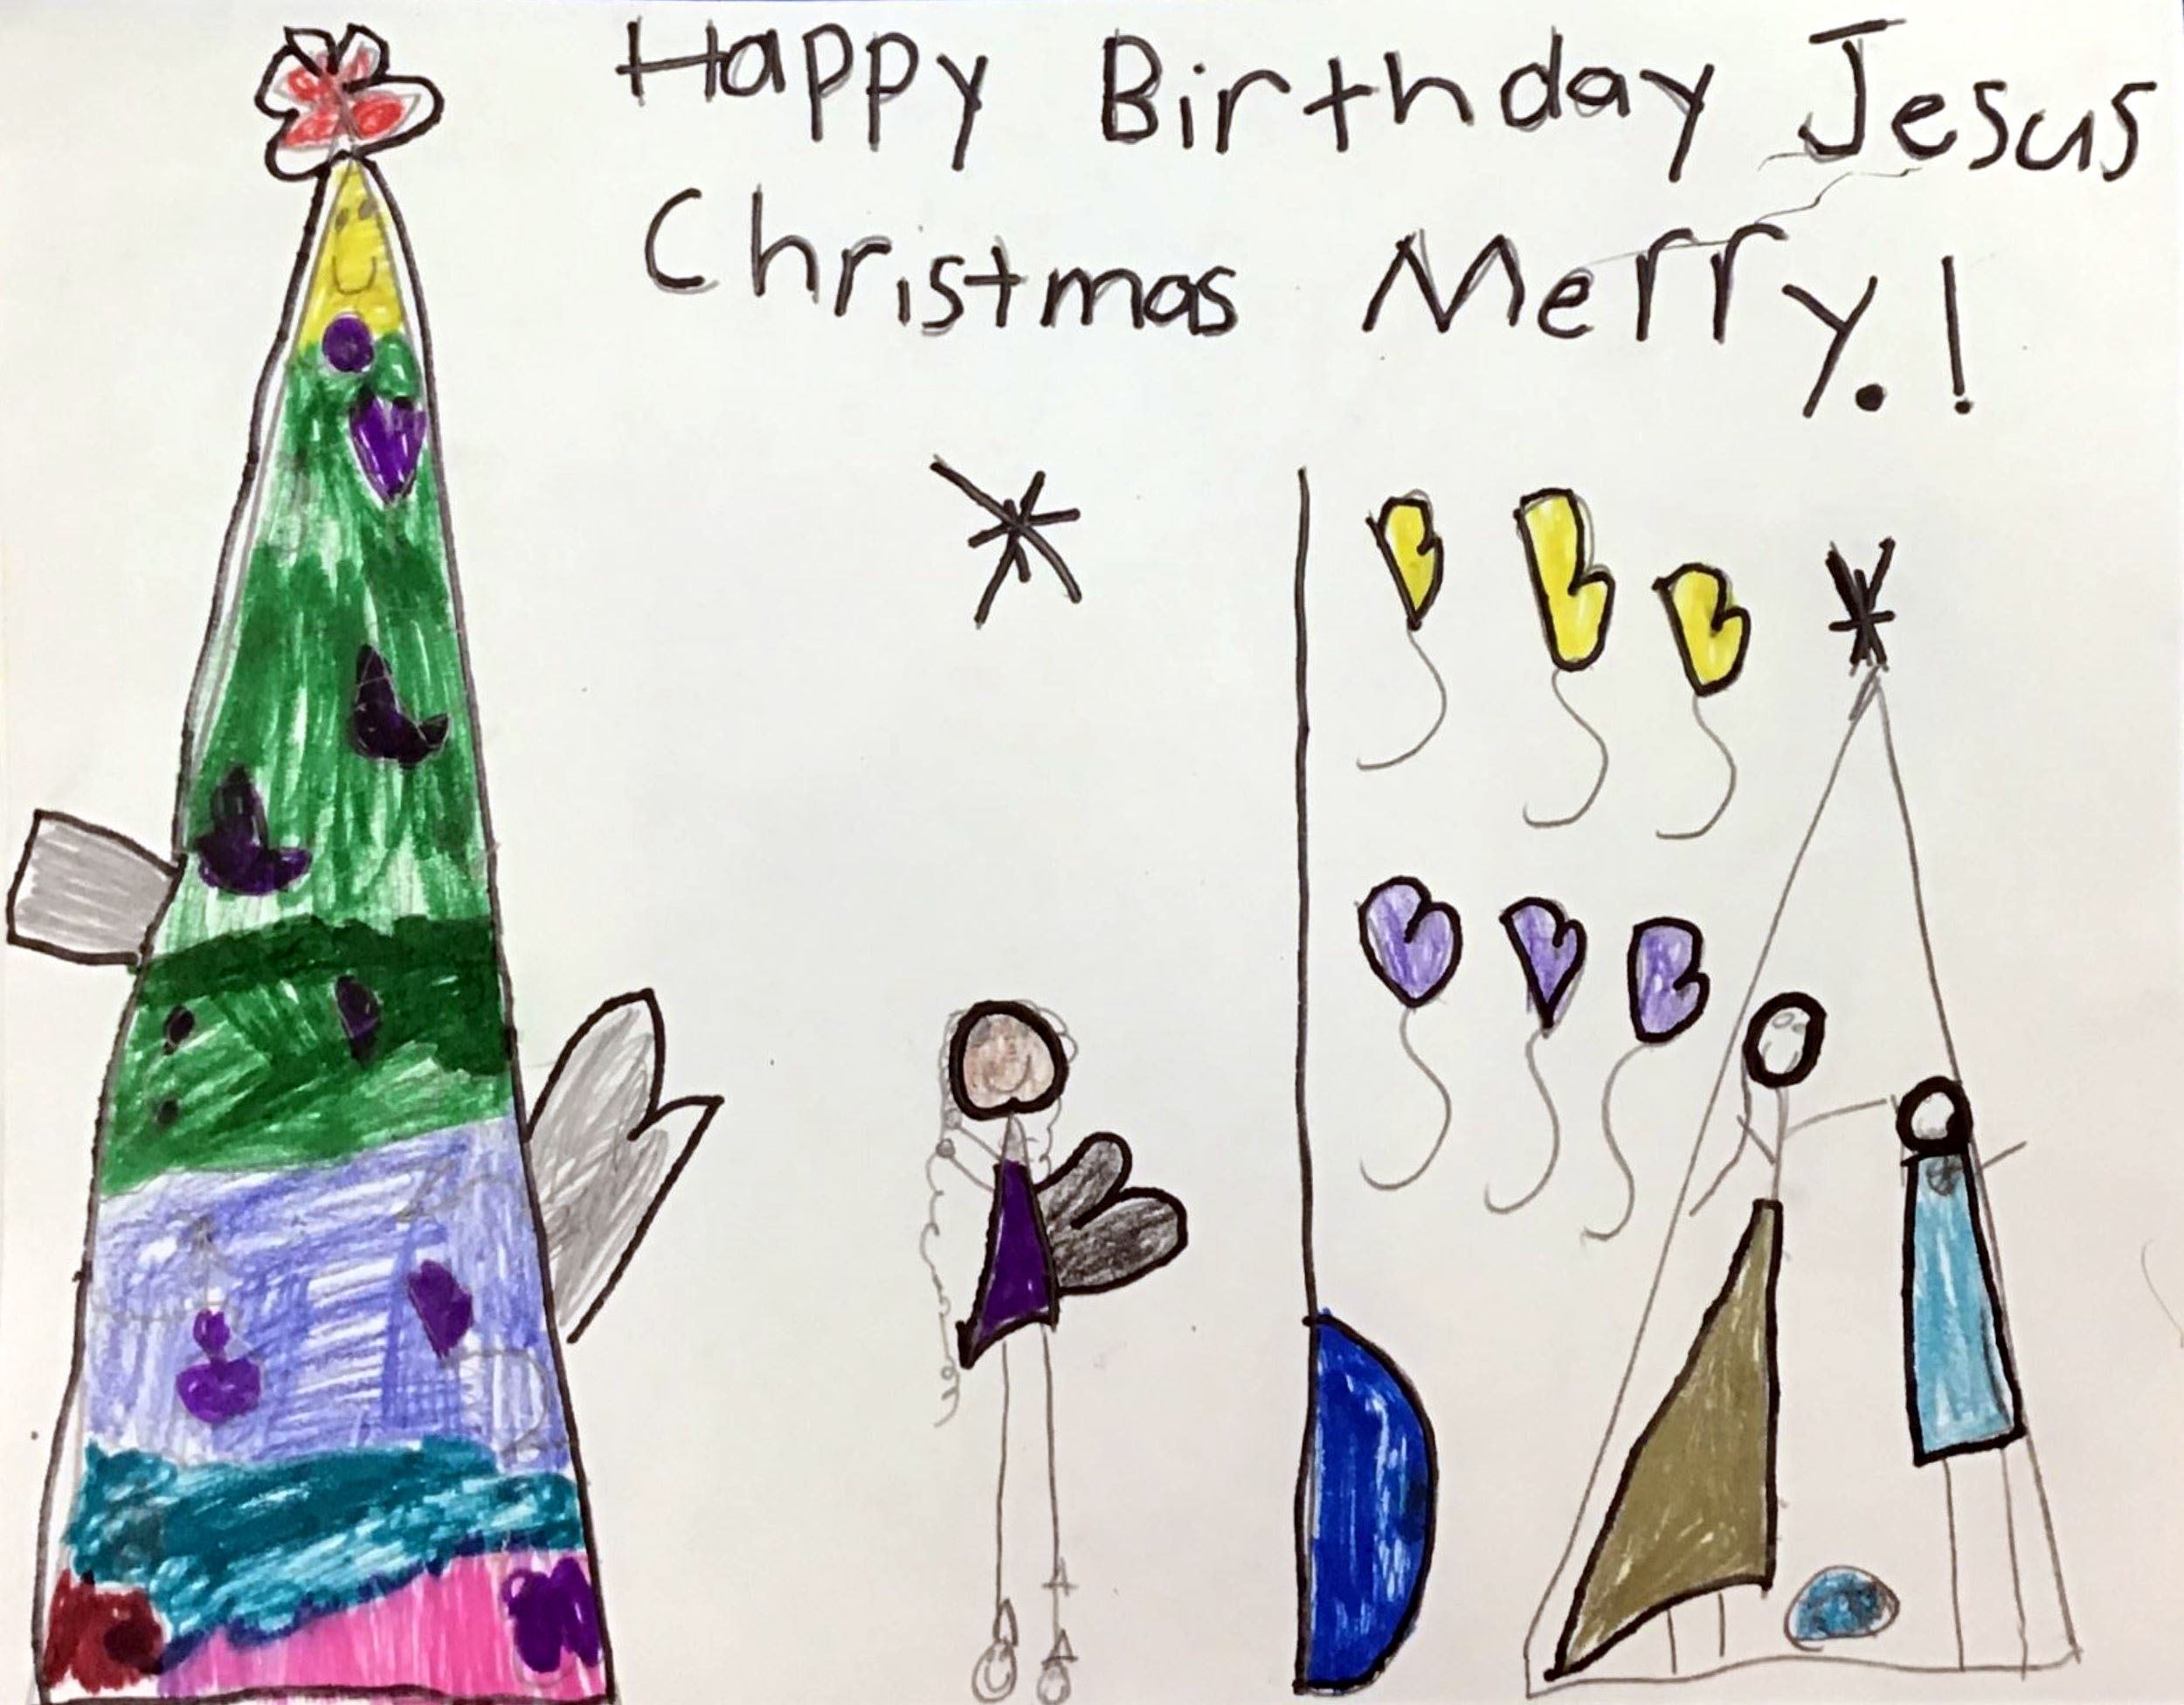 Happy Birthday Jesus
Christmas Merry.!